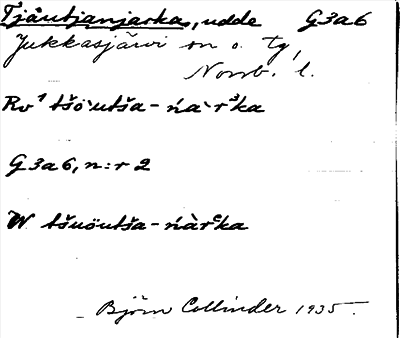 Tjåutjanjarka, udde G3a6
Jukkasjärvi sn o. tg,
Norrb. l.
Rv¹ tšo͔utša-ńa`r³ka
G3a6, n:r 2
W tšuöutša-ńàrᵉka
Björn Collinder 1935.